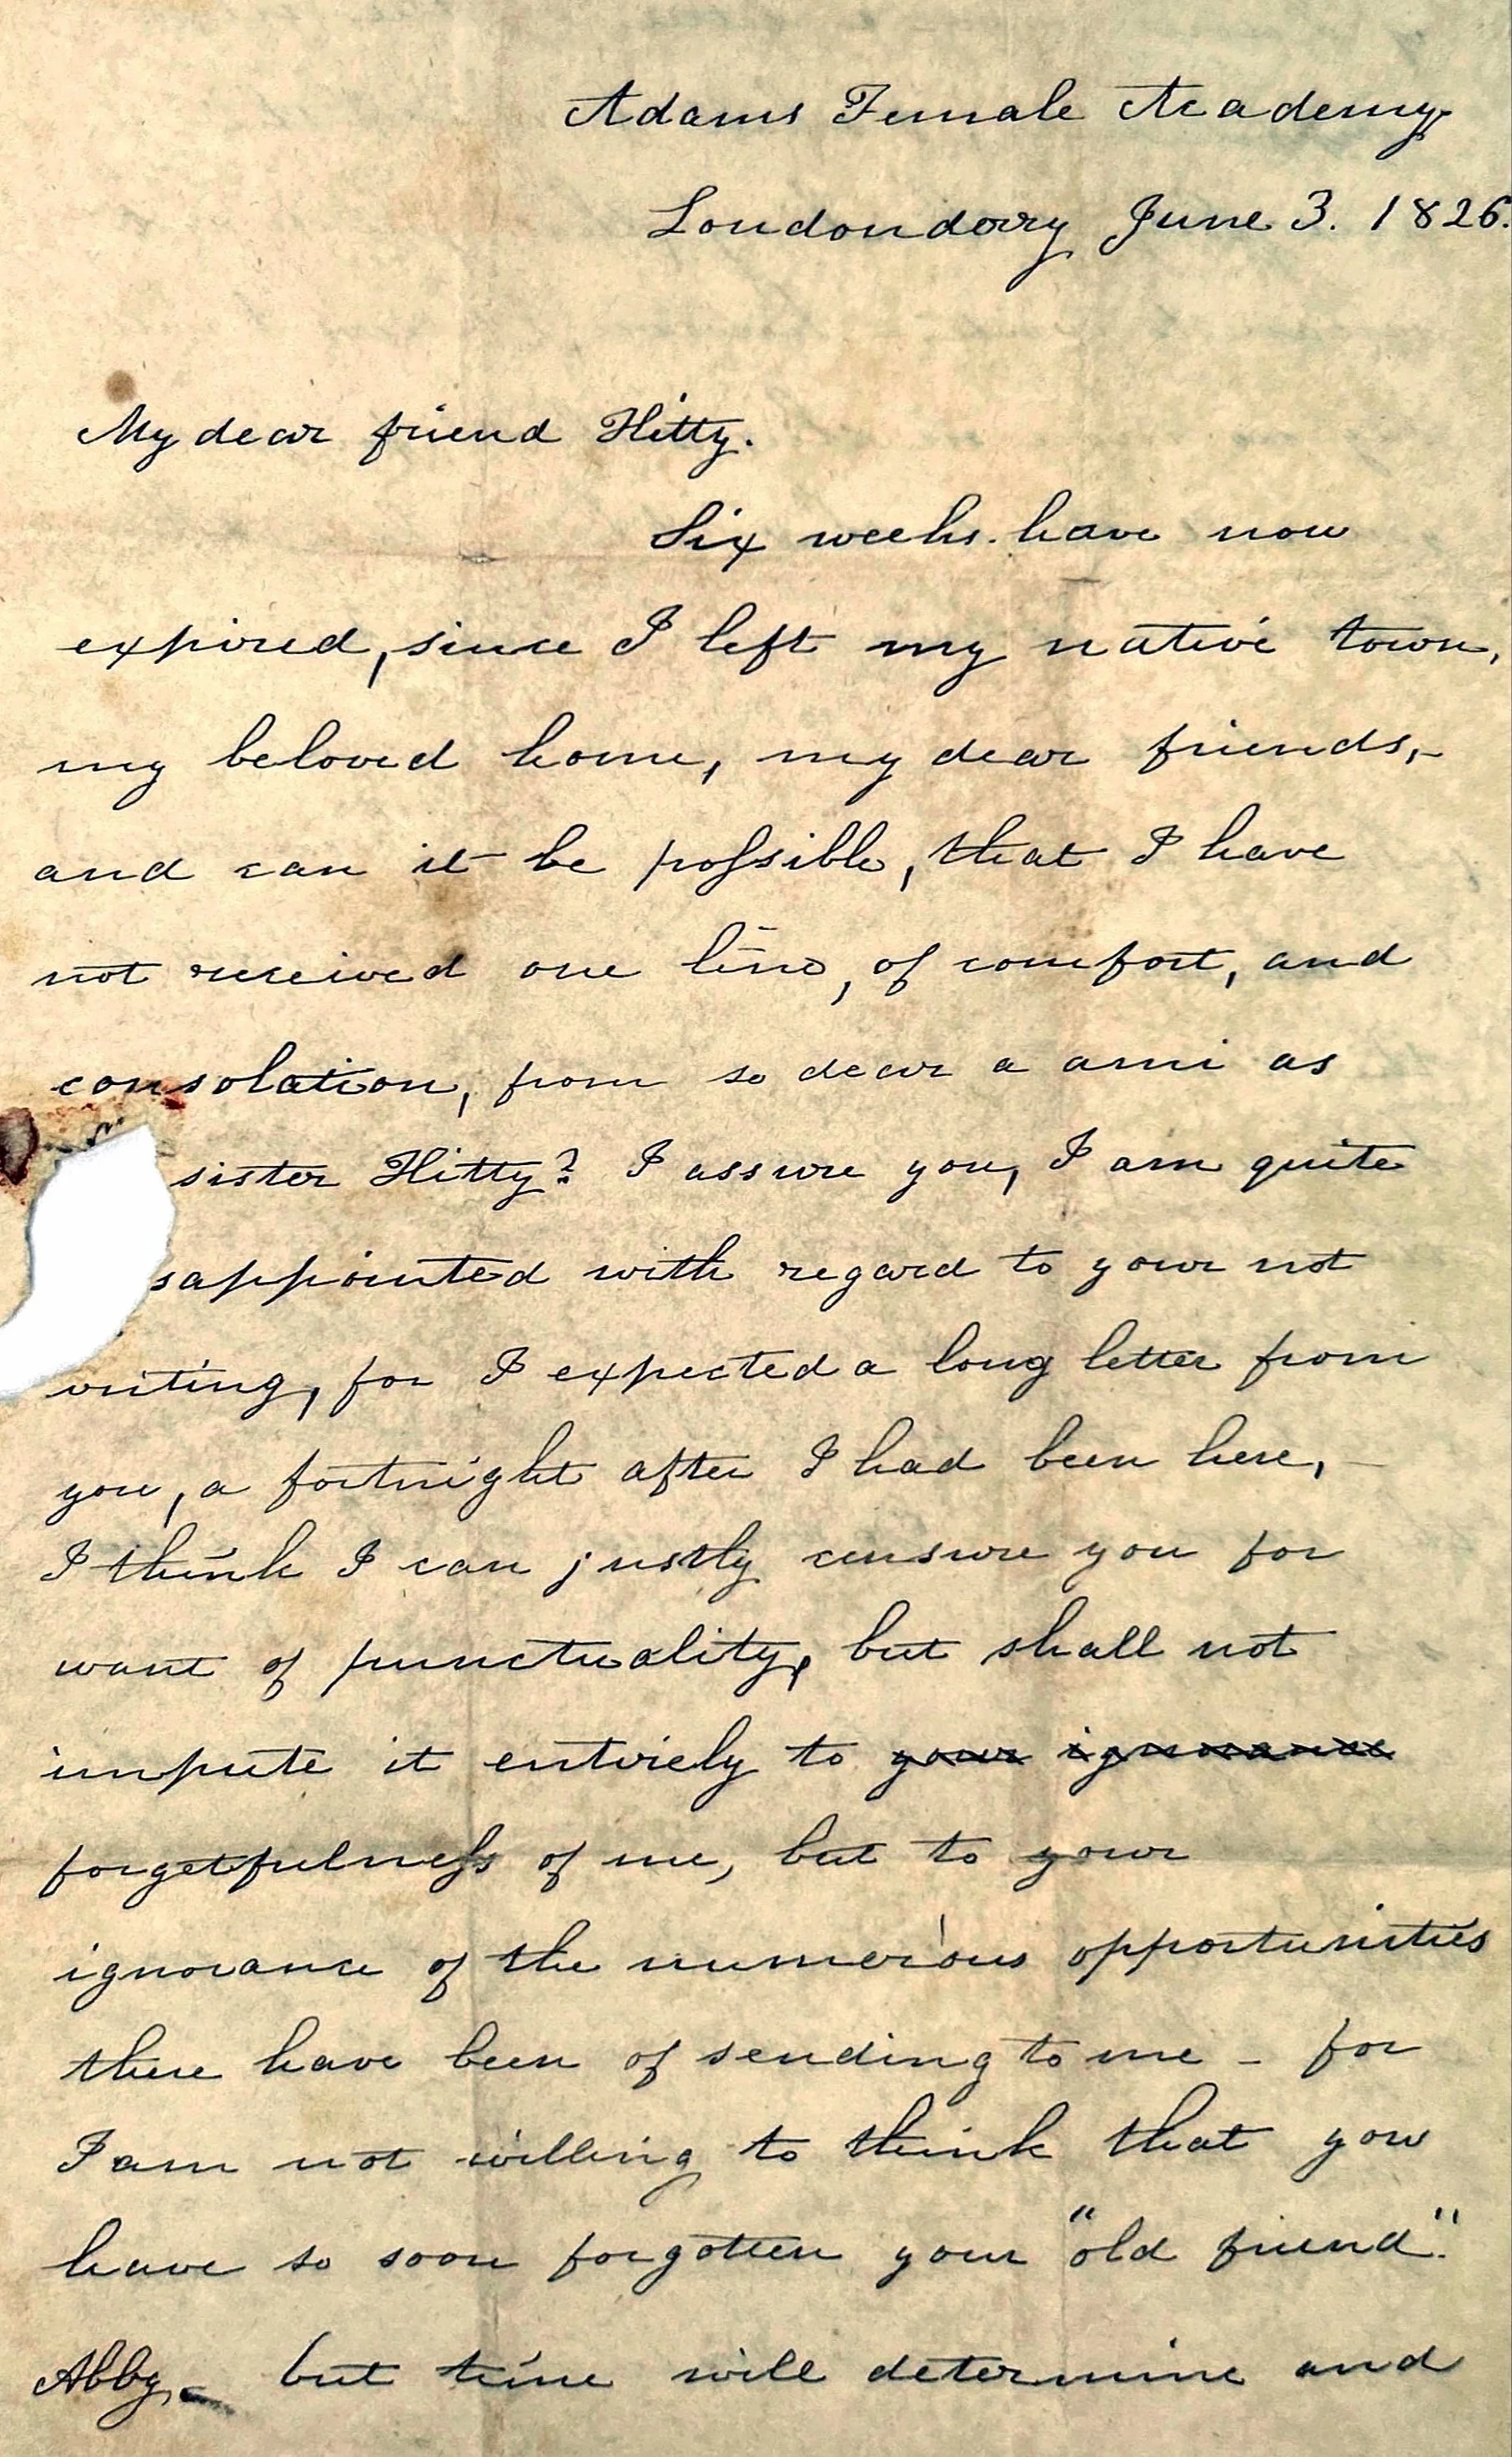 Adams Female Academy
Londonderry June 3. 1826.
My dear friend Hitty.
Six weeks have now
expired, since I left my native town,
my beloved home, my dear friends, –
and can it be poſsible, that I have
not received one line, of comfort, and
consolation, from so dear a ami as
sister Hitty? I assure you, I am quite
sappointed with regard to your not
writing, for I expected a long letter from
you, a fortnight after I had been here, –
I think I can justly censure you for
want of punctuality, but shall not
impute it entirely to your ignorance
forgetfulneſs of me, but to your
ignorance of the numerous opportunities
there have been of sending to me – for
I am not willing to think that you
have so soon forgotten your "old friend".
Abby – but time will determine and